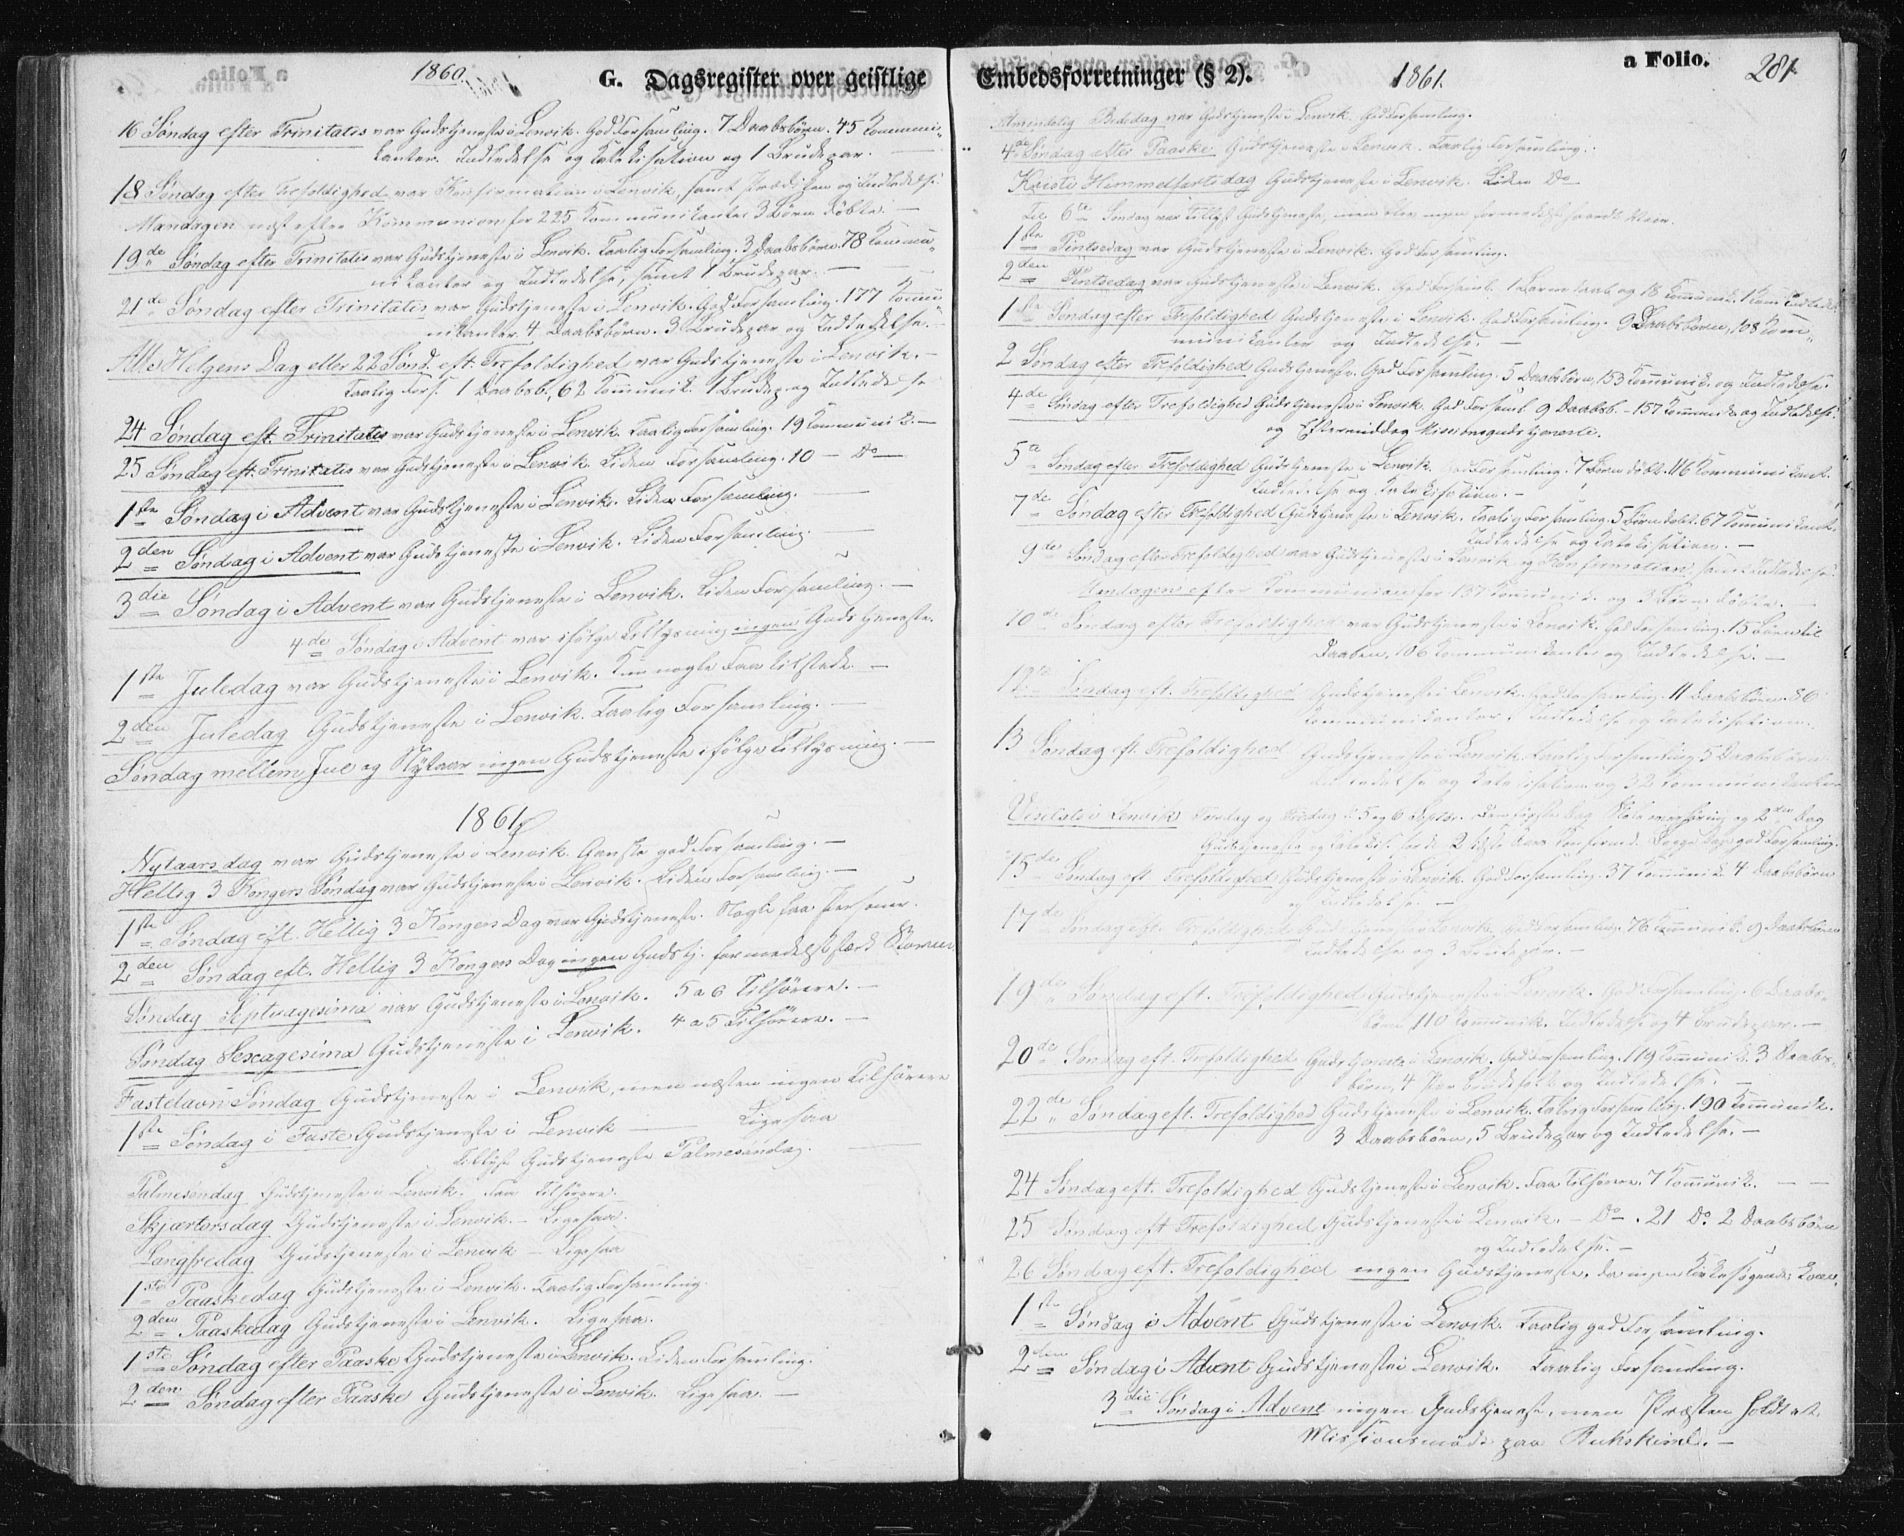 1860.
G. Dagsregister over geistlige
16 Søndag efter Trinitatis var Gudstjeneste i Lenvik. God Forsamling. 7 Daabsbörn. 45 Kommuni-
kanter. Indledelse og Katekisation og 1 Brudepar.
18 Søndag efter Trefoldighed var Konfirmation i Lenvik, samt Prædiken og Indledelse.
Mandagen næst efter Kommunion for 225 Kommunikanter 3 Börn döbte. —
19de Søndag efter Trinitatis var Gudstjeneste i Lenvik. Taalig Forsamling. 3 Daabsbörn. 78 Kommu-
nikanter og Indledelse, samt 1 Brudepar. —
21de Søndag efter Trinitatis var Gudstjeneste i Lenvik. God Forsamling. 177 Kommu-
nikanter. 4 Daabsbörn. 3 Brudepar og Indledelse. —
Alle Helgens Dag eller 22 Sønd. eft. Trefoldighed var Gudstjeneste i Lenvik. —
Taalig Fors. 1 Daabsb., 62 Kommunik. 1 Brudep. og Indledelse
24 Søndag eft. Trinitatis var Gudstjeneste i Lenvik. Taalig Forsamling. 19 Kommunik. —
25 Søndag eft. Trinitatis var Gudstjeneste i Lenvik. Liden Forsamling. 10 — Do —
1ste Søndag i Advent var Gudstjeneste i Lenvik. Liden Forsamling. —
2den Søndag i Advent var Gudstjeneste i Lenvik. Liden Forsamling.
3die Søndag i Advent var Gudstjeneste i Lenvik. Liden Forsamling. —
4de Søndag i Advent var ifølge Tillysning ingen Gudstjeneste.
1ste Juledag var Gudstjeneste i Lenvik. Kun nogle Faa tilstede. —
2den Juledag Gudstjeneste i Lenvik. Taalig Forsamling. —
Søndag mellem Jul og Nytaar ingen Gudstjeneste ifølge Tillysning. —
1861.
Nytaarsdag var Gudstjeneste i Lenvik. Ganske god Forsamling. —
Hellig 3 Kongers Søndag var Gudstjeneste i Lenvik. Liden Forsamling. —
1ste Søndag eft. Hellig 3 Kongers Dag var Gudstjeneste. Nogle faa Personer.
2den Søndag eft. Hellig 3 Kongers Dag ingen Gudstj. formedelst stærk Storm
Søndag Septuagesima var Gudstjeneste i Lenvik. 5 a 6 Tilhörere. —
Søndag Sexagesima Gudstjeneste i Lenvik. 4 a 5 Tilhörere. —
Fastelavn Søndag Gudstjeneste i Lenvik, men næsten ingen Tilhörere
1ste Søndag i Faste Gudstjeneste i Lenvik — Ligesaa
Tillyst Gudstjeneste Palmesøndag.
Palmesøndag Gudstjeneste i Lenvik. Faa Tilhörere.
Skjærtorsdag Gudstjeneste i Lenvik. — Ligesaa.
Langfredag Gudstjeneste i Lenvik — Ligesaa
1ste Paaskedag Gudstjeneste i Lenvik. Taalig Forsamling.
2den Paaskedag Gudstjeneste i Lenvik. Ligesaa.
1ste Søndag efter Paaske Gudstjeneste i Lenvik. Liden Forsamling.
2den Søndag efter Paaske Gudstjeneste i Lenvik. Ligesaa. —
Embedsforretninger (§ 2).
1861.
a Folio.
281.
Almindelig Bededag var Gudstjeneste i Lenvik. God Forsamling.
4de Søndag efter Paaske Gudstjeneste i Lenvik. Taalig Forsamling.
Kristi Himmelfartsdag Gudstjeneste i Lenvik. Liden Do
Til 6te Søndag var tillyst Gudstjeneste, men blev ingen formedelst haardt Veir.
1ste Pintsedag var Gudstjeneste i Lenvik. God Forsamling.
2den Pintsedag var Gudstjeneste i Lenvik. God Forsaml. 1 Barnedaab og 18 Kommunik. 1 Indledel.
1ste Søndag efter Trefoldighed Gudstjeneste i Lenvik. God Forsamling. 9 Daabsbörn, 108 Kom-
munikanter og Indledelse. —
2 Søndag efter Trefoldighed Gudstjeneste. God Forsamling. 5 Daabsbörn, 153 Kommunik. og Indledelse.
4de Søndag efter Trefoldighed Gudstjeneste i Lenvik. God Forsaml. 9 Daabsb. — 157 Kommunik. og Indledelse
og Eftermiddag Missionsgudstjeneste.
5te Søndag efter Trefoldighed Gudstjeneste i Lenvik. God Forsamling. 7 Börn döbt. 116 Kommunikant.
Indledelse og Katekisation. —
7de Søndag efter Trefoldighed Gudstjeneste i Lenvik. Taalig Forsamling. 5 Börn döbt. 67 Kommunikant.
Indledelse og Katekisation. —
9de Søndag efter Trefoldighed var Gudstjeneste i Lenvik og Konfirmation, samt Indledelse.
Mandagen efter Kommunion for 137 Kommunik. og 3 Börn döbte. —
10de Søndag efter Trefoldighed var Gudstjeneste i Lenvik. God Forsamling. 15 Börn til
Daaben, 106 Kommunikanter og Indledelse. —
12te Søndag eft. Trefoldighed Gudstjeneste i Lenvik. God Forsamling. 11 Daabsbörn. 86
Kommunikanter, Indledelse og Katekisation.
13 Søndag eft. Trefoldighed Gudstjeneste i Lenvik. Taalig Forsamling 5 Daabsbörn
Indledelse og Katekisation og 32 Kommunikanter
Visitats i Lenvik Torsdag og Fredag d. 5 og 6 Septbr. Den første Dag Skoleexamination og 2den Dag
Gudstjeneste og Katekis. for de 2 sidste Aars Konfirmd. Begge Dage god Forsamling.
15de Søndag eft. Trefoldighed Gudstjeneste i Lenvik. God Forsamling. 37 Kommunik. 4 Daabsbörn
og Indledelse. —
17de Søndag eft. Trefoldighed Gudstjeneste i Lenvik. God Forsamling. 76 Kommunik. 9 Daabsbörn
Indledelse og 3 Brudepar. —
19de Søndag eft. Trefoldighed Gudstjeneste i Lenvik. God Forsamling. 6 Daabs-
börn, 110 Komunik. Indledelse og 4 Brudepar. —
20de Søndag eft. Trefoldighed Gudstjeneste i Lenvik. God Forsamling. 119 Kommunik. 3 Daabs-
börn, 4 Par Brudefolk og Indledelse. —
22de Søndag eft. Trefoldighed Gudstjeneste i Lenvik. Talrig Forsamling. 190 Kommunik.
3 Daabsbörn, 5 Brudepar og Indledelse. —
24 Søndag eft. Trefoldighed Gudstjeneste i Lenvik. Faa Tilhörere. 7 Kommunik. —
25 Søndag eft Trefoldighed Gudstjeneste i Lenvik. — Do — . 21 Do. 2 Daabsbörn
og Indledelse. —
26 Søndag eft. Trefoldighed ingen Gudstjeneste, da ingen Kirkesøgende kom.
1ste Søndag i Advent Gudstjeneste i Lenvik. Taalig god Forsamling.
2den Søndag i Advent Gudstjeneste i Lenvik. Taalig Forsamling.
3die Søndag i Advent ingen Gudstjeneste, men Præsten holdt et
Missionsmöde paa Bukskind. —